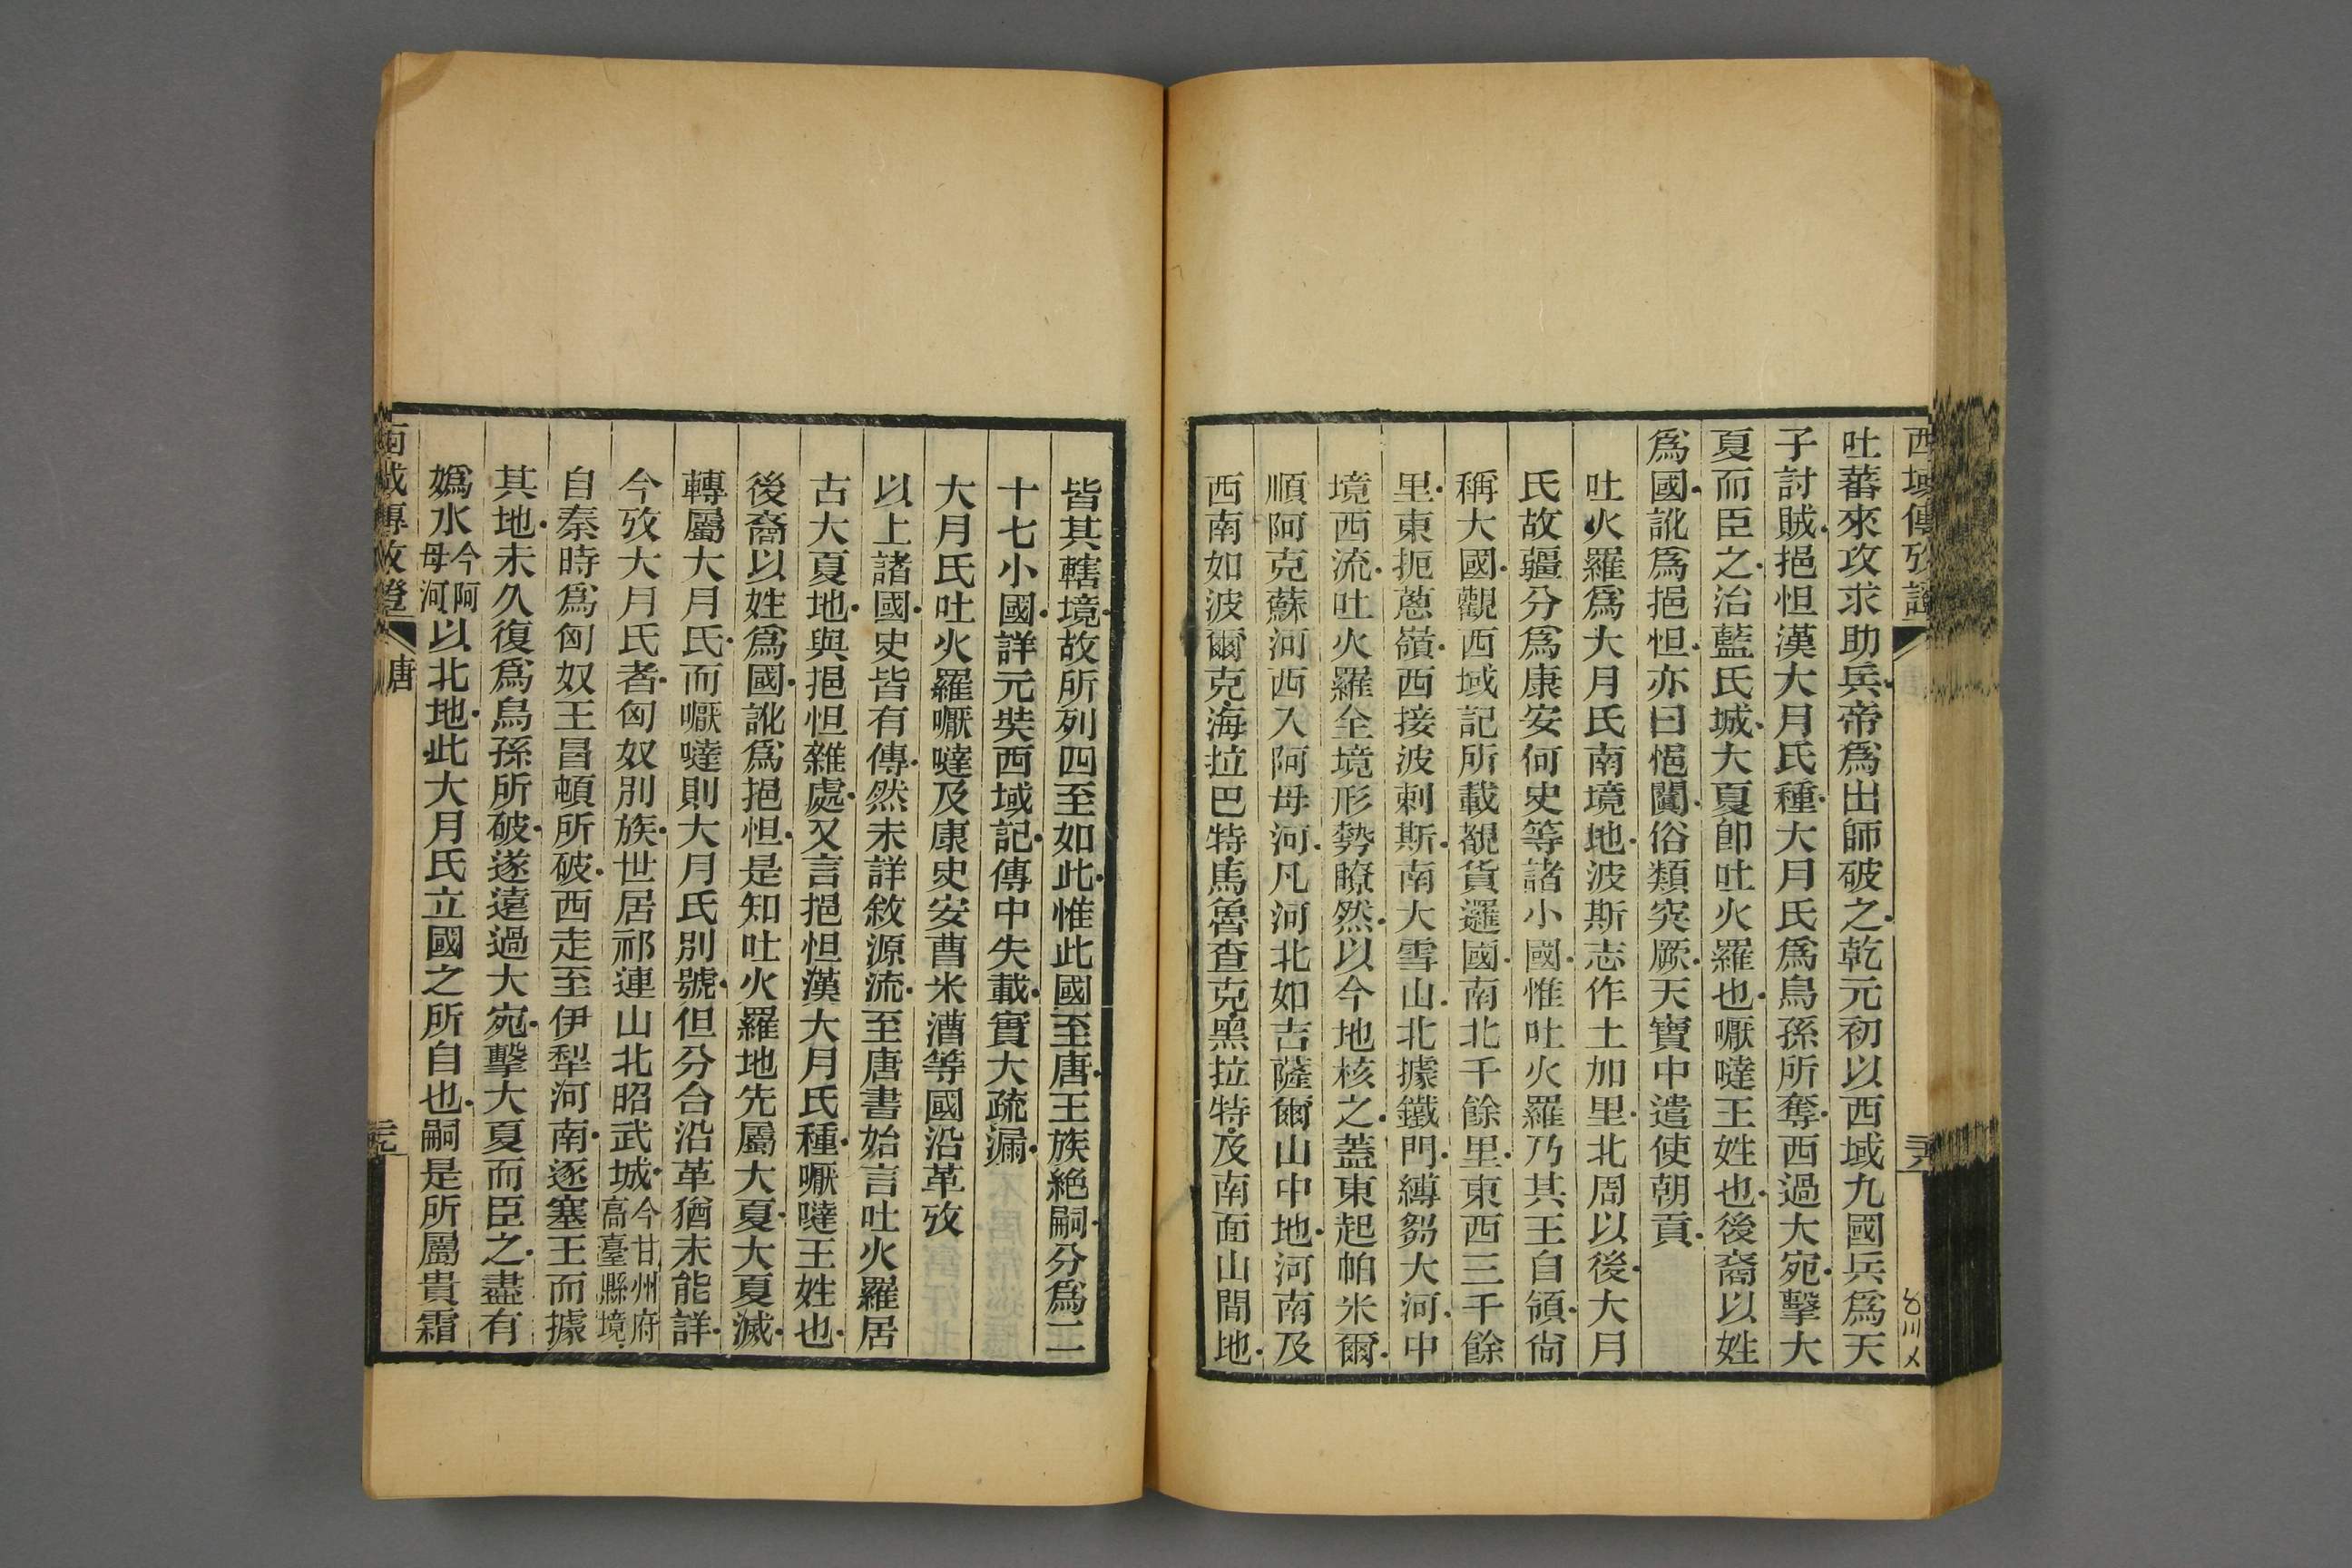 西域傳攷證
吐蕃來攻求助兵帝為出師破之乾元初以西域九國兵為天
子討賊挹怛漢大月氏種大月氏為烏孫所奪西過大宛擊大
夏而臣之治藍氏城大夏卽吐火羅也嚈噠王姓也後裔以姓
為國訛為挹怛亦曰悒闐俗類突厥天寶中遣使朝貢
吐火羅為大月氏南境地波斯志作土加里北周以後大月
氏故疆分為康安何史等諸小國惟吐火羅乃其王自領尙
稱大國觀西域記所載覩貨邏國南北千餘里東西三千餘
里東扼蔥嶺西接波剌斯南大雪山北據鐵門縛芻大河中
境西流吐火羅全境形勢瞭然以今地核之蓋東起帕米爾
順阿克蘇河西入阿母河凡河北如吉薩爾山中地河南及
西南如波爾克海拉巴特馬魯查克黑拉特及南面山間地
皆其轄境故所列四至如此惟此國至唐王族絶嗣分為二
十七小國詳元奘西域記傳中失載實大疏漏
大月氏吐火羅嚈噠及康史安曹米漕等國沿革攷
以上諸國史皆有傳然未詳敘源流至唐書始言吐火羅居
古大夏地與挹怛雜處又言挹怛漢大月氏種嚈噠王姓也
後裔以姓為國訛為挹怛是知吐火羅地先屬大夏大夏滅
轉屬大月氏而嚈噠則大月氏別號但分合沿革猶未能詳
今攷大月氏者匈奴別族世居祁連山北昭武城今甘州府高臺縣境
自秦時為匈奴王冒頓所破西走至伊犁河南逐塞王而據
其地未久復為烏孫所破遂遠過大宛擊大夏而臣之盡有
媯水今阿母河以北地此大月氏立國之所自也嗣是所屬貴霜
西域傳攷證 唐